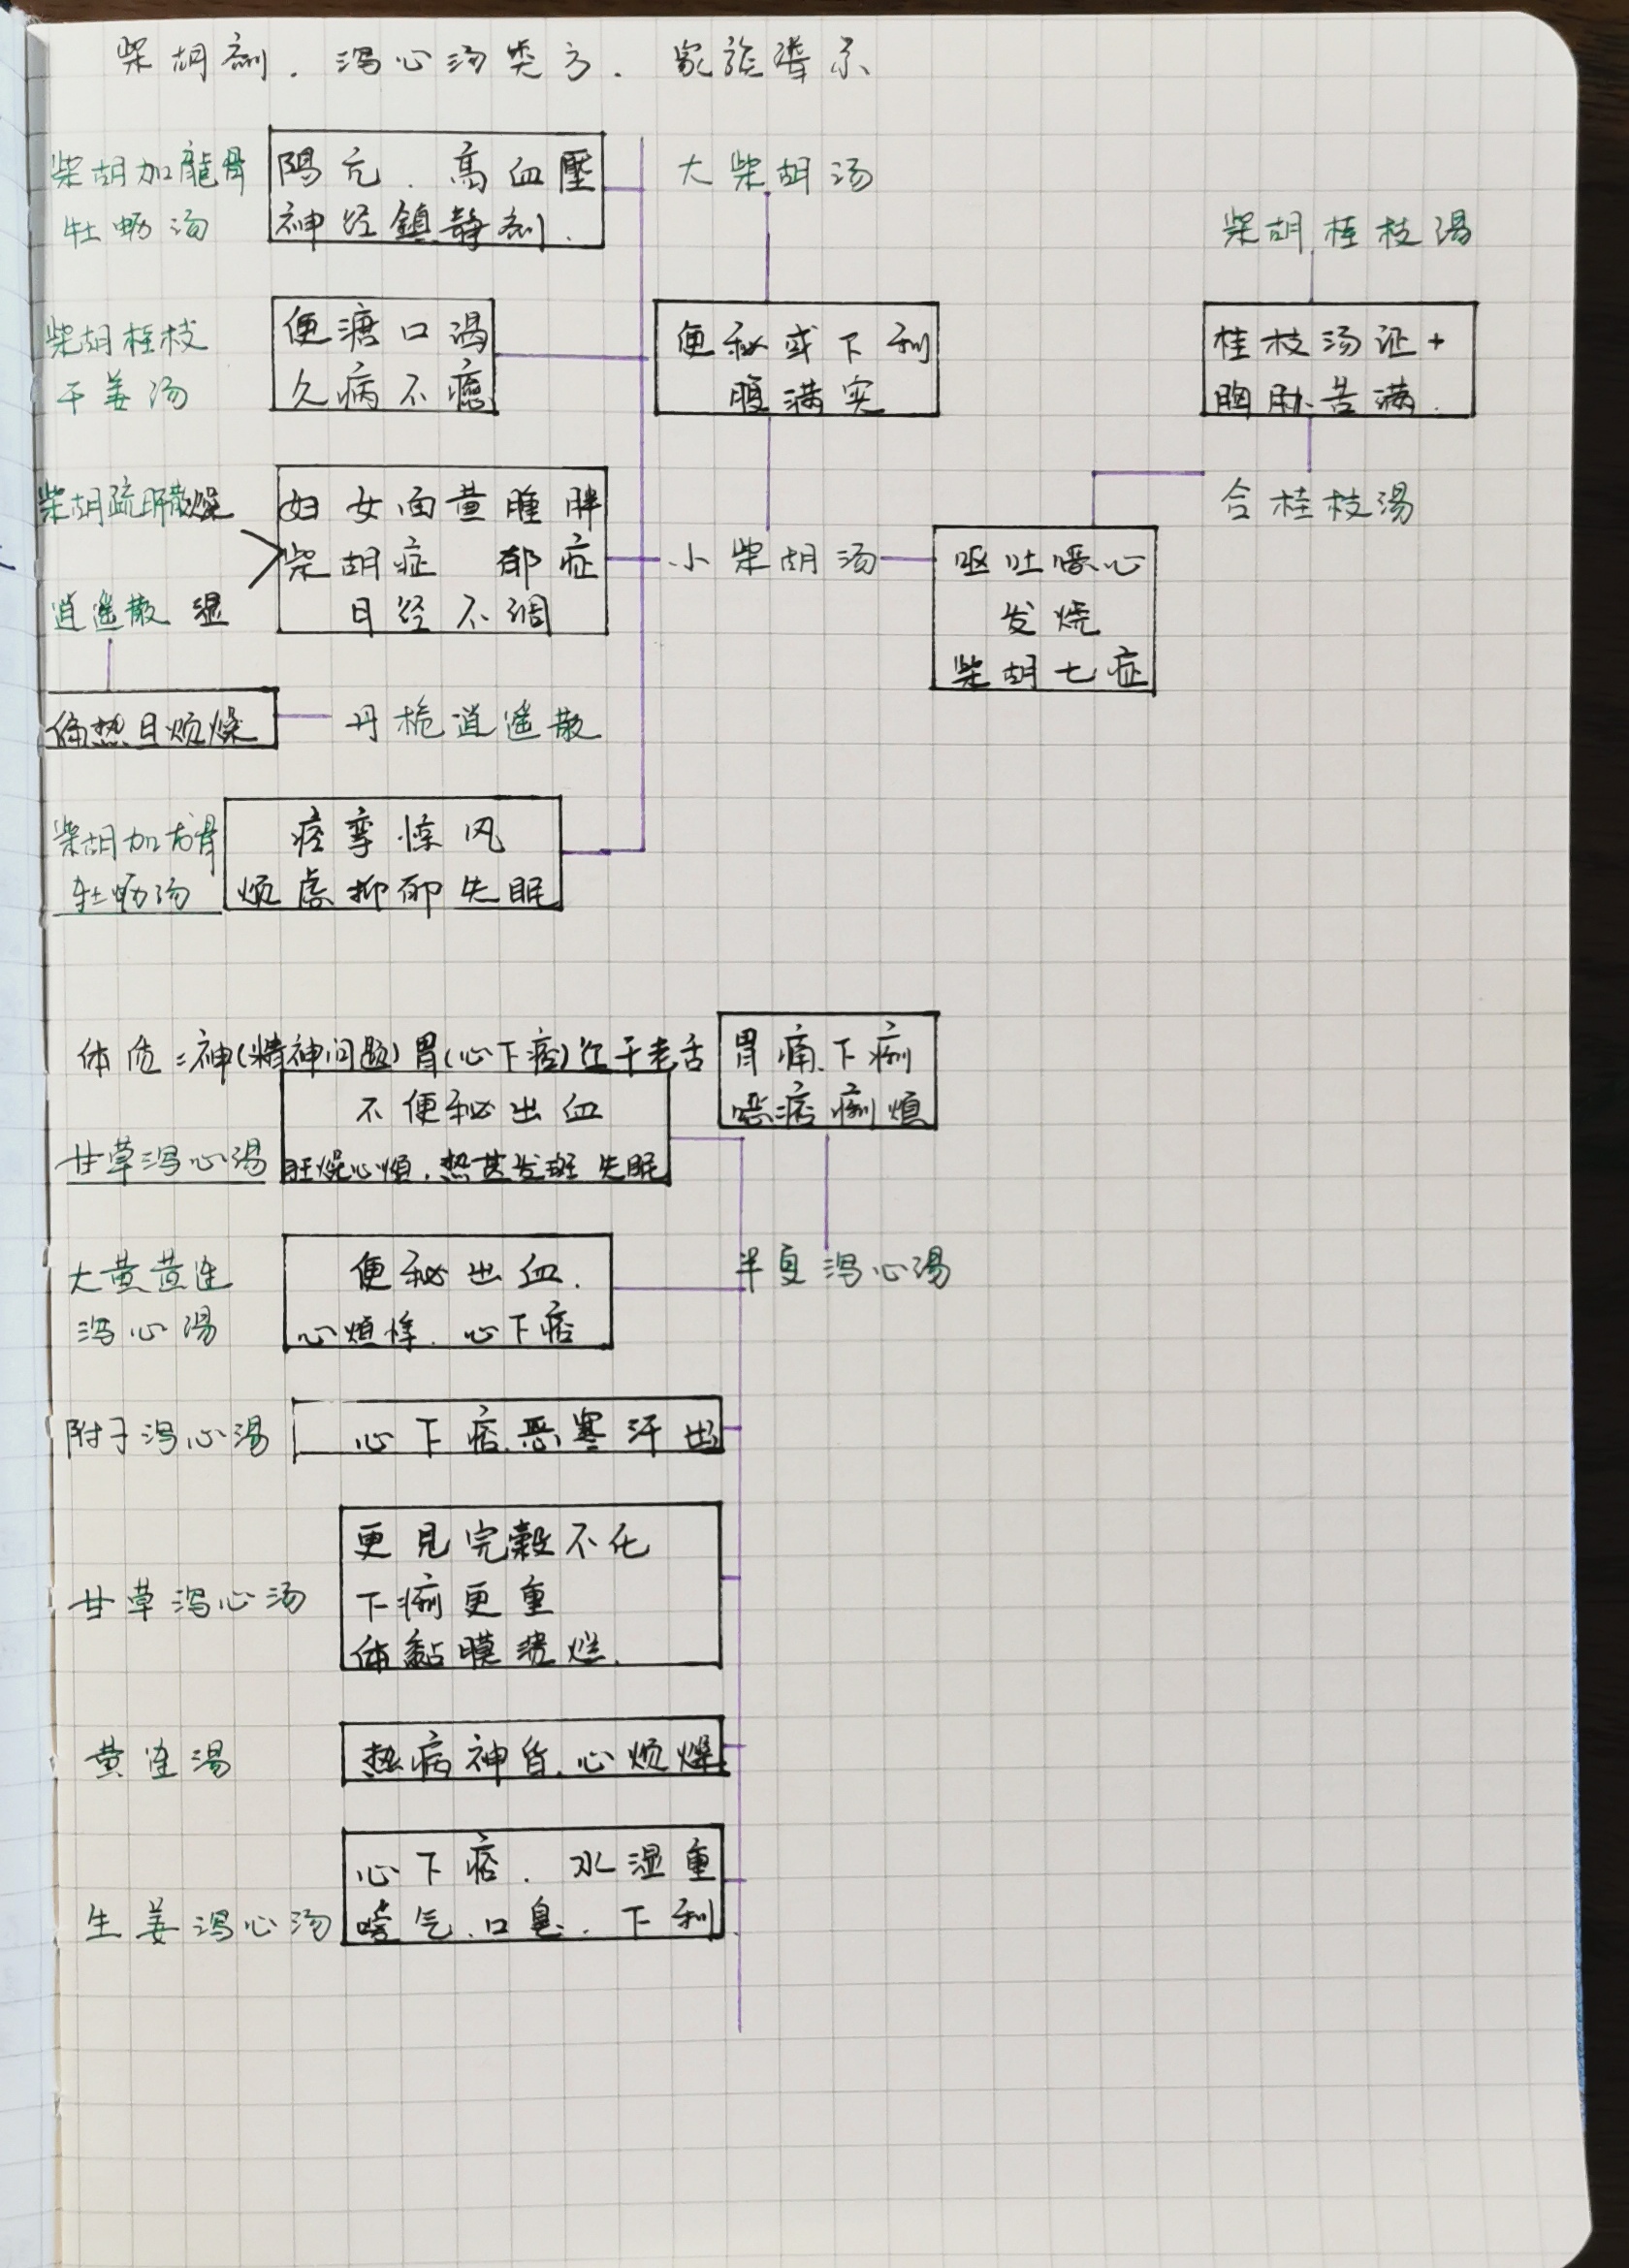 柴胡剂．泻心汤类方．家族
柴胡加龍骨
牡蛎汤
陽亢．高血壓
神经鎮静剂．
大柴胡汤
柴胡桂枝湯
柴胡桂枝
干姜汤
便溏口渴
久病不癒
便秘或下利
腹满实
桂枝汤证+
胸胁苦满．
合桂枝湯
柴胡疏肝散燥
逍遥散 湿
妇女面黄腫胖
柴胡症 郁症
月经不调
小柴胡汤
呕吐噁心
发烧
柴胡七症
偏热日烦燥
丹栀逍遥散
柴胡加龙骨
牡蛎汤
痉挛惊风
烦虑抑郁失眠
体质：神(精神问题)胃(心下痞)红干老舌
胃痛．下痢
噁痞痢煩
甘草泻心湯
不便秘出血
狂燥心煩．热甚发斑 失眠
大黄黄连
泻心湯
便秘出血．
心煩悸．心下痞
半夏泻心湯
附子泻心湯
心下痞．恶寒汗出
甘草泻心汤
更見完穀不化
下痢更重
体黏膜溃烂．
黄连湯
热病神昏．心烦燥
生姜泻心汤
心下痞．水湿重
嗳气．口臭．下利